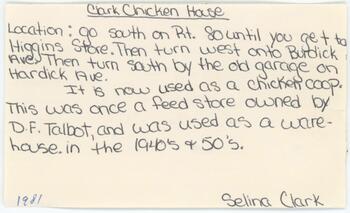 Clark Chicken House
Location: go south on Rt. 80 until you get to
Higgins Store. Then turn west onto Burdick
Ave. Then turn south by the old garage on
Hardick Ave.
It is now used as a chicken coop.
This was once a feed store owned by
D.F. Talbot, and was used as a ware-
house. in the 1940's & 50's.
1981
Selina Clark